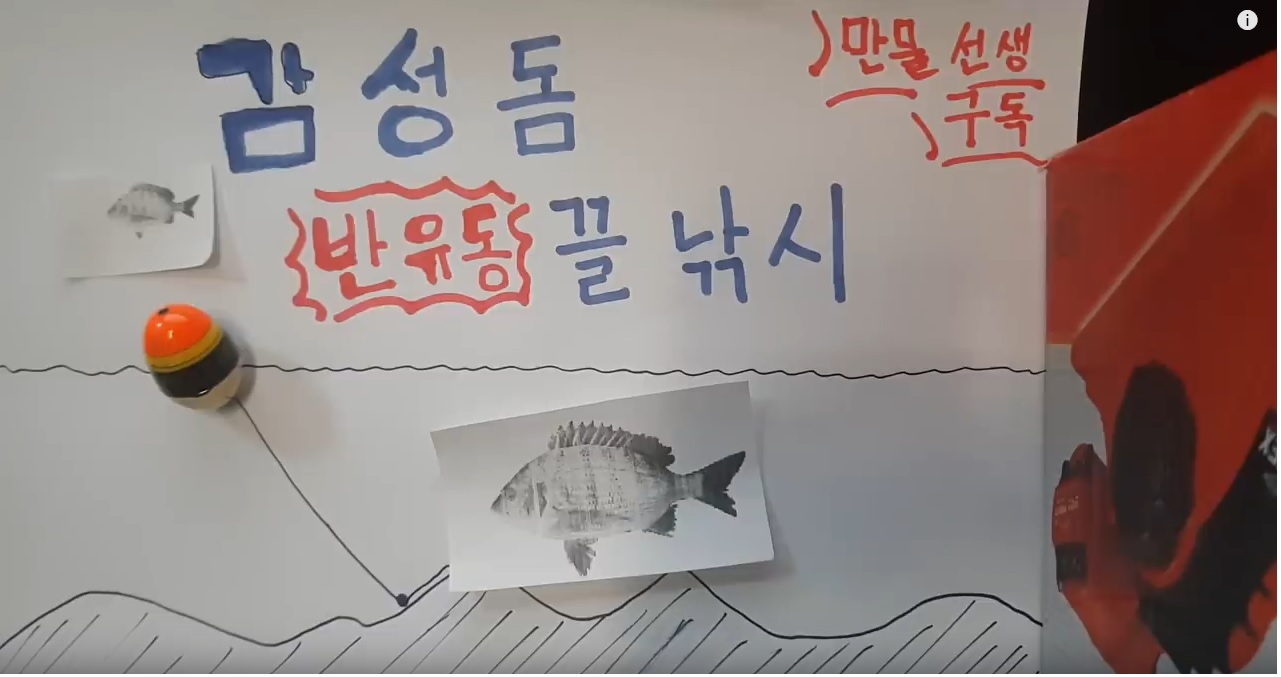 감성돔
만물 선생
구독
반유동 끌 낚시